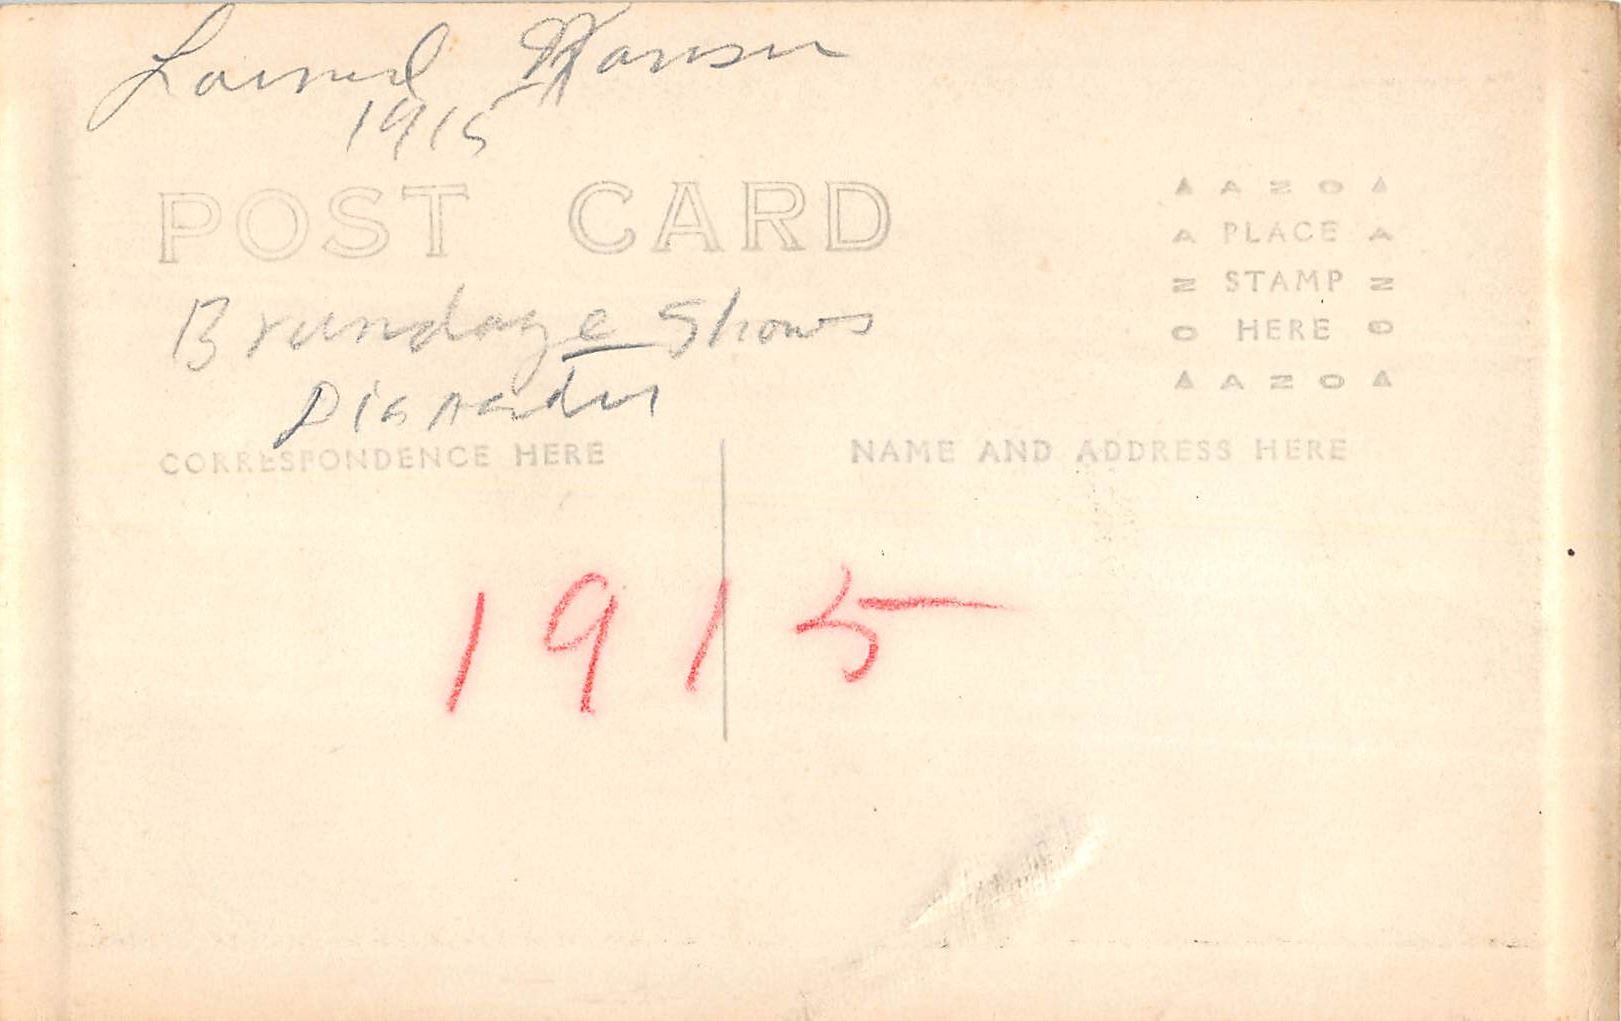 Larned Kansas
1915
POST CARD
Brundage Shows
Disaster
▲ A Z O ▲
A PLACE A
Z STAMP Z
O HERE O
▲ A Z O ▲
CORRESPONDENCE HERE
NAME AND ADDRESS HERE
1915